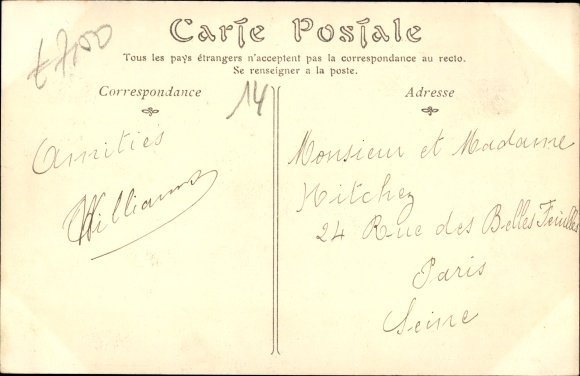 £7,00
Carte Postale
Tous les pays étrangers n'acceptent pas la correspondance au recto.
Se renseigner a la poste.
Correspondance
14
Adresse
Amitiés
Williams
Monsieur et Madame
Hitchez
24 Rue des Belles Feuilles
Paris
Seine